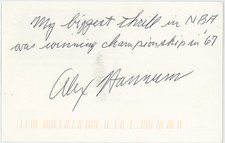 My biggest thrill in NBA
was winning championship in '67
Alex Hannum